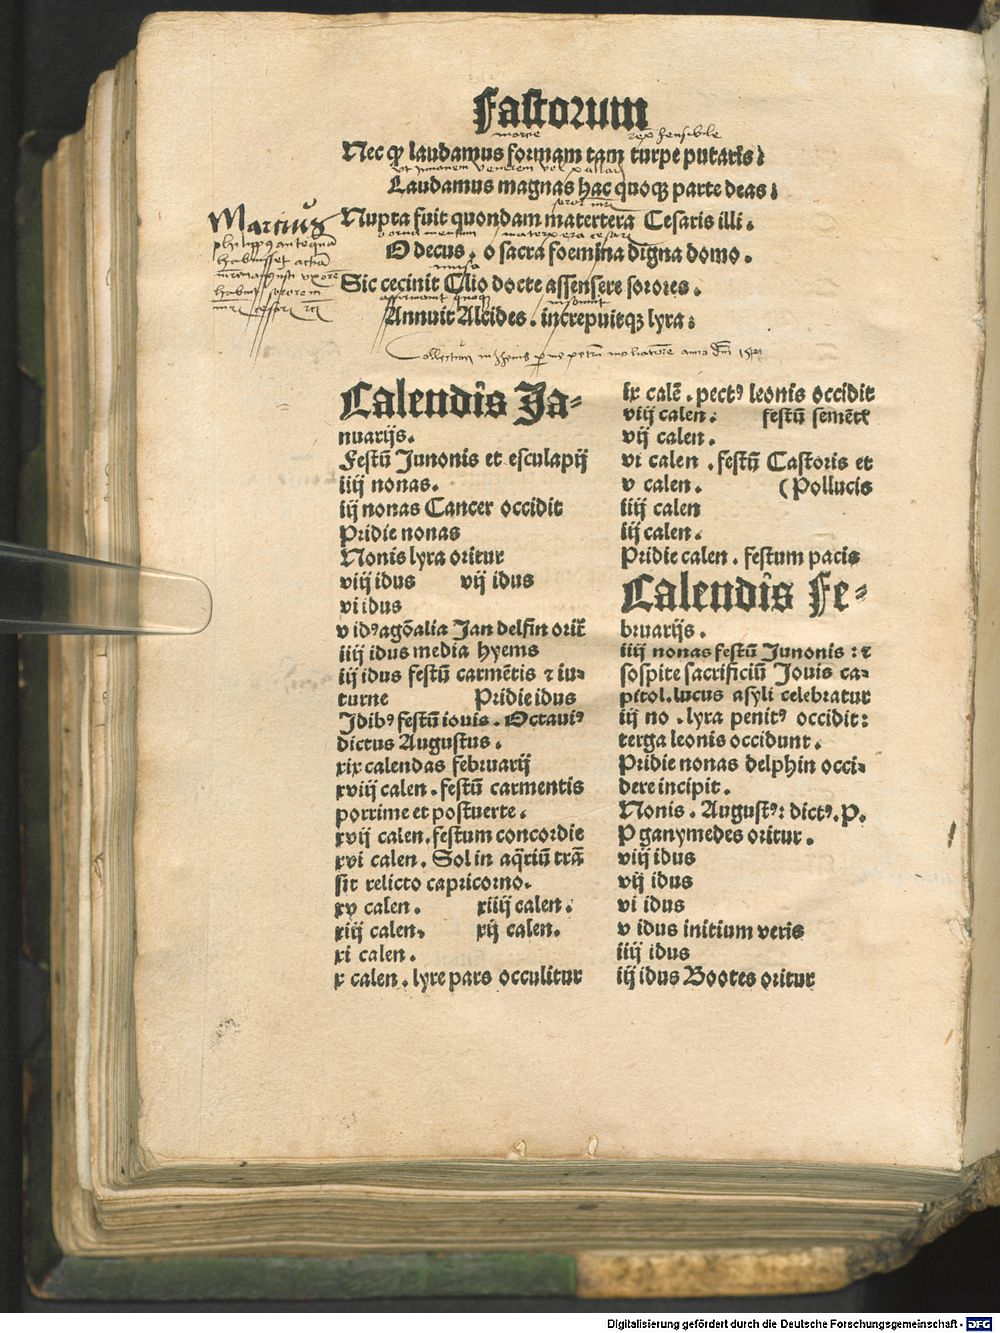 Fastorum
Nec ꝙ laudamus formam tam turpe putaris:
Laudamus magnas hac quoqꝫ parte deas:
Nupta fuit quondam matertera Cesaris illi.
O decus, o sacra foemina digna domo.
Sic cecinit Clio docte assensere sorores.
Annuit Alcides. increpuitqꝫ lyra:
Marcius
Calendis Ja-
nuarijs.
Festū Junonis et esculapij
iiij nonas.
iij nonas Cancer occidit
Pridie nonas
Nonis lyra oritur
viij idus vij idus
vi idus
v idꝰ agōalia Jan delfin orit̄
iiij idus media hyems
iij idus festū carmētis ⁊ iu-
turne Pridie idus
Jdibꝰ festū iouis. Octauiꝰ
dictus Augustus.
xix calendas februarij
xviij calen. festū carmentis
porrime et postuerte.
xvij calen. festum concordie
xvi calen. Sol in aq̄riū trā
sit relicto capricorno.
xv calen. xiiij calen.
xiij calen. xij calen.
xi calen.
x calen. lyre pars occulitur
ix calē. pectꝰ leonis occidit
viij calen. festū semēt̄
vij calen.
vi calen. festū Castoris et
v calen. (Pollucis
iiij calen
iij calen.
Pridie calen. festum pacis
Calendis Fe-
bruarijs.
iiij nonas festū Junonis : ⁊
sospite sacrificiū Jouis ca-
pitol. lucus asyli celebratur
iij no. lyra penitꝰ occidit:
terga leonis occidunt.
Pridie nonas delphin occi-
dere incipit.
Nonis. Augustꝰ: dictꝰ. P.
P ganymedes oritur.
viij idus
vij idus
vi idus
v idus initium veris
iiij idus
iij idus Bootes oritur
Digitalisierung gefördert durch die Deutsche Forschungsgemeinschaft - DFG